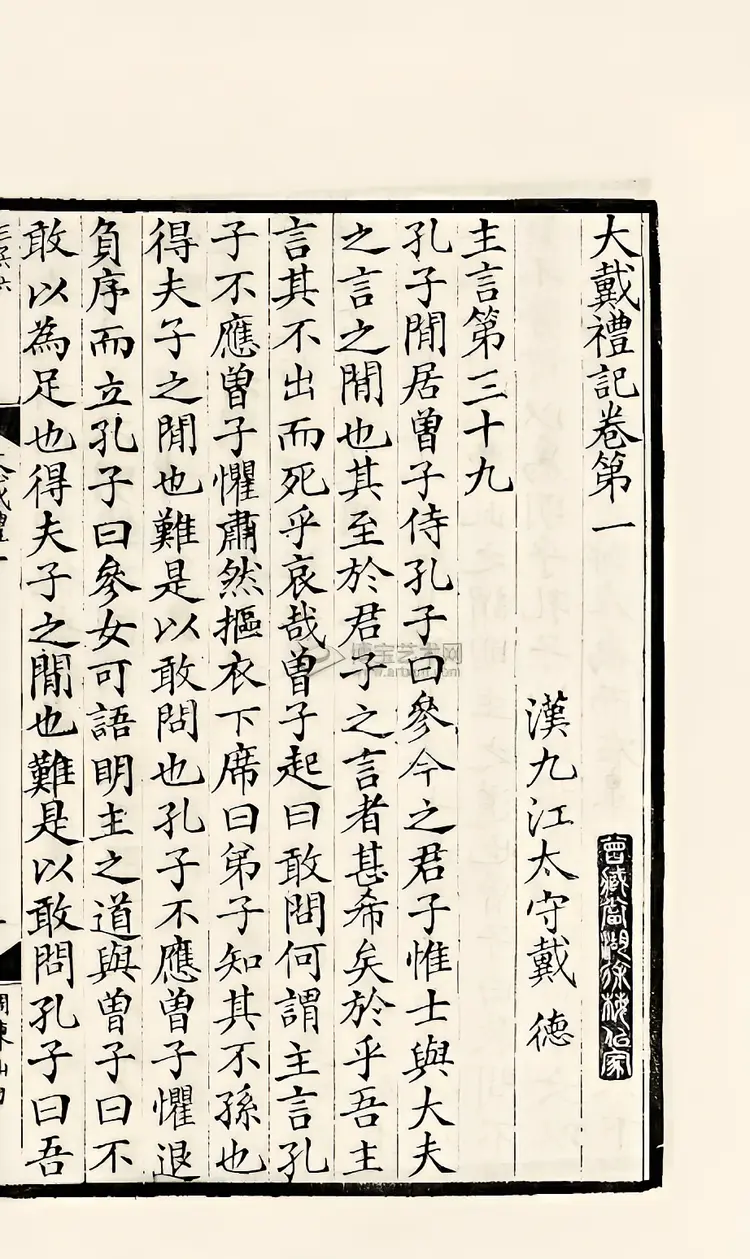 大戴禮記卷第一
漢九江太守戴 德
主言第三十九
孔子閒居曾子侍孔子曰參今之君子惟士與大夫
之言之閒也其至於君子之言者甚希矣於乎吾主
言其不出而死乎哀哉曾子起曰敢問何謂主言孔
子不應曾子懼肅然摳衣下席曰弟子知其不孫也
得夫子之閒也難是以敢問也孔子不應曾子懼退
負序而立孔子曰參女可語明主之道與曾子曰不
敢以為足也得夫子之閒也難是以敢問孔子曰吾
曾藏當湖徐梅似家
博宝艺术网